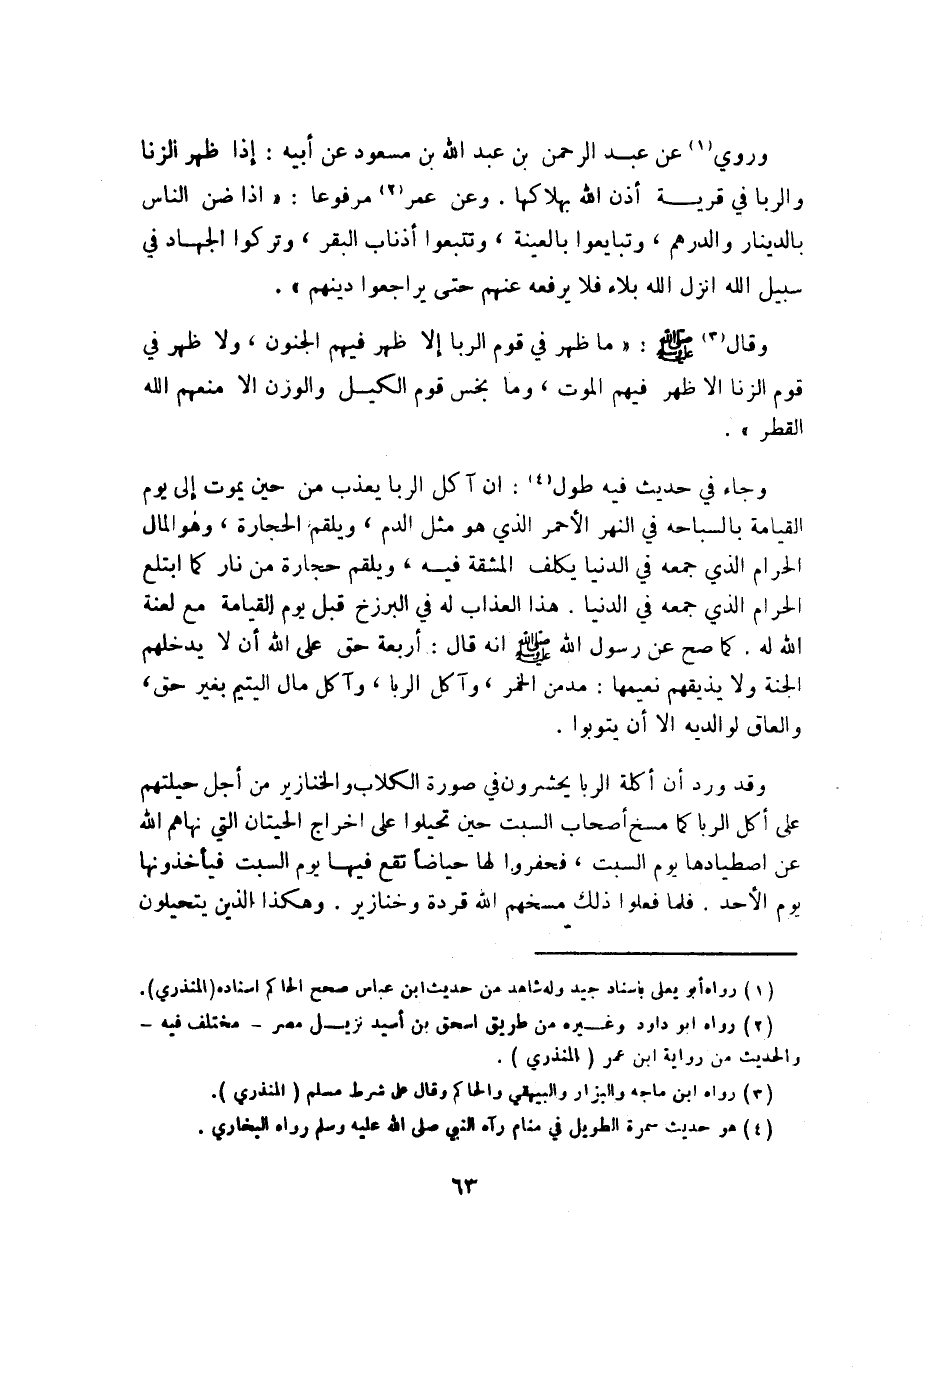 وروي(١) عن عبد الرحمن بن عبد الله بن مسعود عن أبيه : إذا ظهر الزنا
والربا في قرية أذن الله بهلاكها . وعن عمر(٢) مرفوعا : « اذا ضن الناس
بالدينار والدرهم ، وتبايعوا بالعينة ، وتتبعوا أذناب البقر ، وتركوا الجهاد في
سبيل الله انزل الله بلاء فلا يرفعه عنهم حتى يراجعوا دينهم » .
وقال(٣) ﷺ : « ما ظهر في قوم الربا إلا ظهر فيهم الجنون ، ولا ظهر في
قوم الزنا الا ظهر فيهم الموت ، وما بخس قوم الكيل والوزن الا منعهم الله
القطر » .
وجاء في حديث فيه طول(٤) : ان آكل الربا يعذب من حين يموت إلى يوم
القيامة بالسباحه في النهر الأحمر الذي هو مثل الدم ، ويلقم الحجارة ، وهو المال
الحرام الذي جمعه في الدنيا يكلف المشقة فيه ، ويلقم حجارة من نار كما ابتلع
الحرام الذي جمعه في الدنيا . هذا العذاب له في البرزخ قبل يوم القيامة مع لعنة
الله له . كما صح عن رسول الله ﷺ انه قال : أربعة حق على الله أن لا يدخلهم
الجنة ولا يذيقهم نعيمها : مدمن الخمر ، وآكل الربا ، وآكل مال اليتيم بغير حق،
والعاق لوالديه الا أن يتوبوا .
وقد ورد أن أكلة الربا يحشرون في صورة الكلاب والخنازير من أجل حيلتهم
على أكل الربا كما مسخ أصحاب السبت حين تحيلوا على اخراج الحيتان التي نهاهم الله
عن اصطيادها يوم السبت ، فحفروا لها حياضاً تقع فيها يوم السبت فيأخذونها
يوم الأحد . فلما فعلوا ذلك مسخهم الله قردة وخنازير . وهكذا الذين يتحيلون
(١) رواه أبو يعلى بأسناد جيد وله شاهد من حديث ابن عباس صحح الحاكم اسناده (المنذري).
(٢) رواه ابو داود وغيره من طريق اسحق بن أسيد نزيل مصر - مختلف فيه -
والحديث من رواية ابن عمر ( المنذري ) .
(٣) رواه ابن ماجه والبزار والبيهقي والحاكم وقال على شرط مسلم ( المنذري ).
(٤) هو حديث سمرة الطويل في منام رآه النبي صلى الله عليه وسلم رواه البخاري .
٦٣